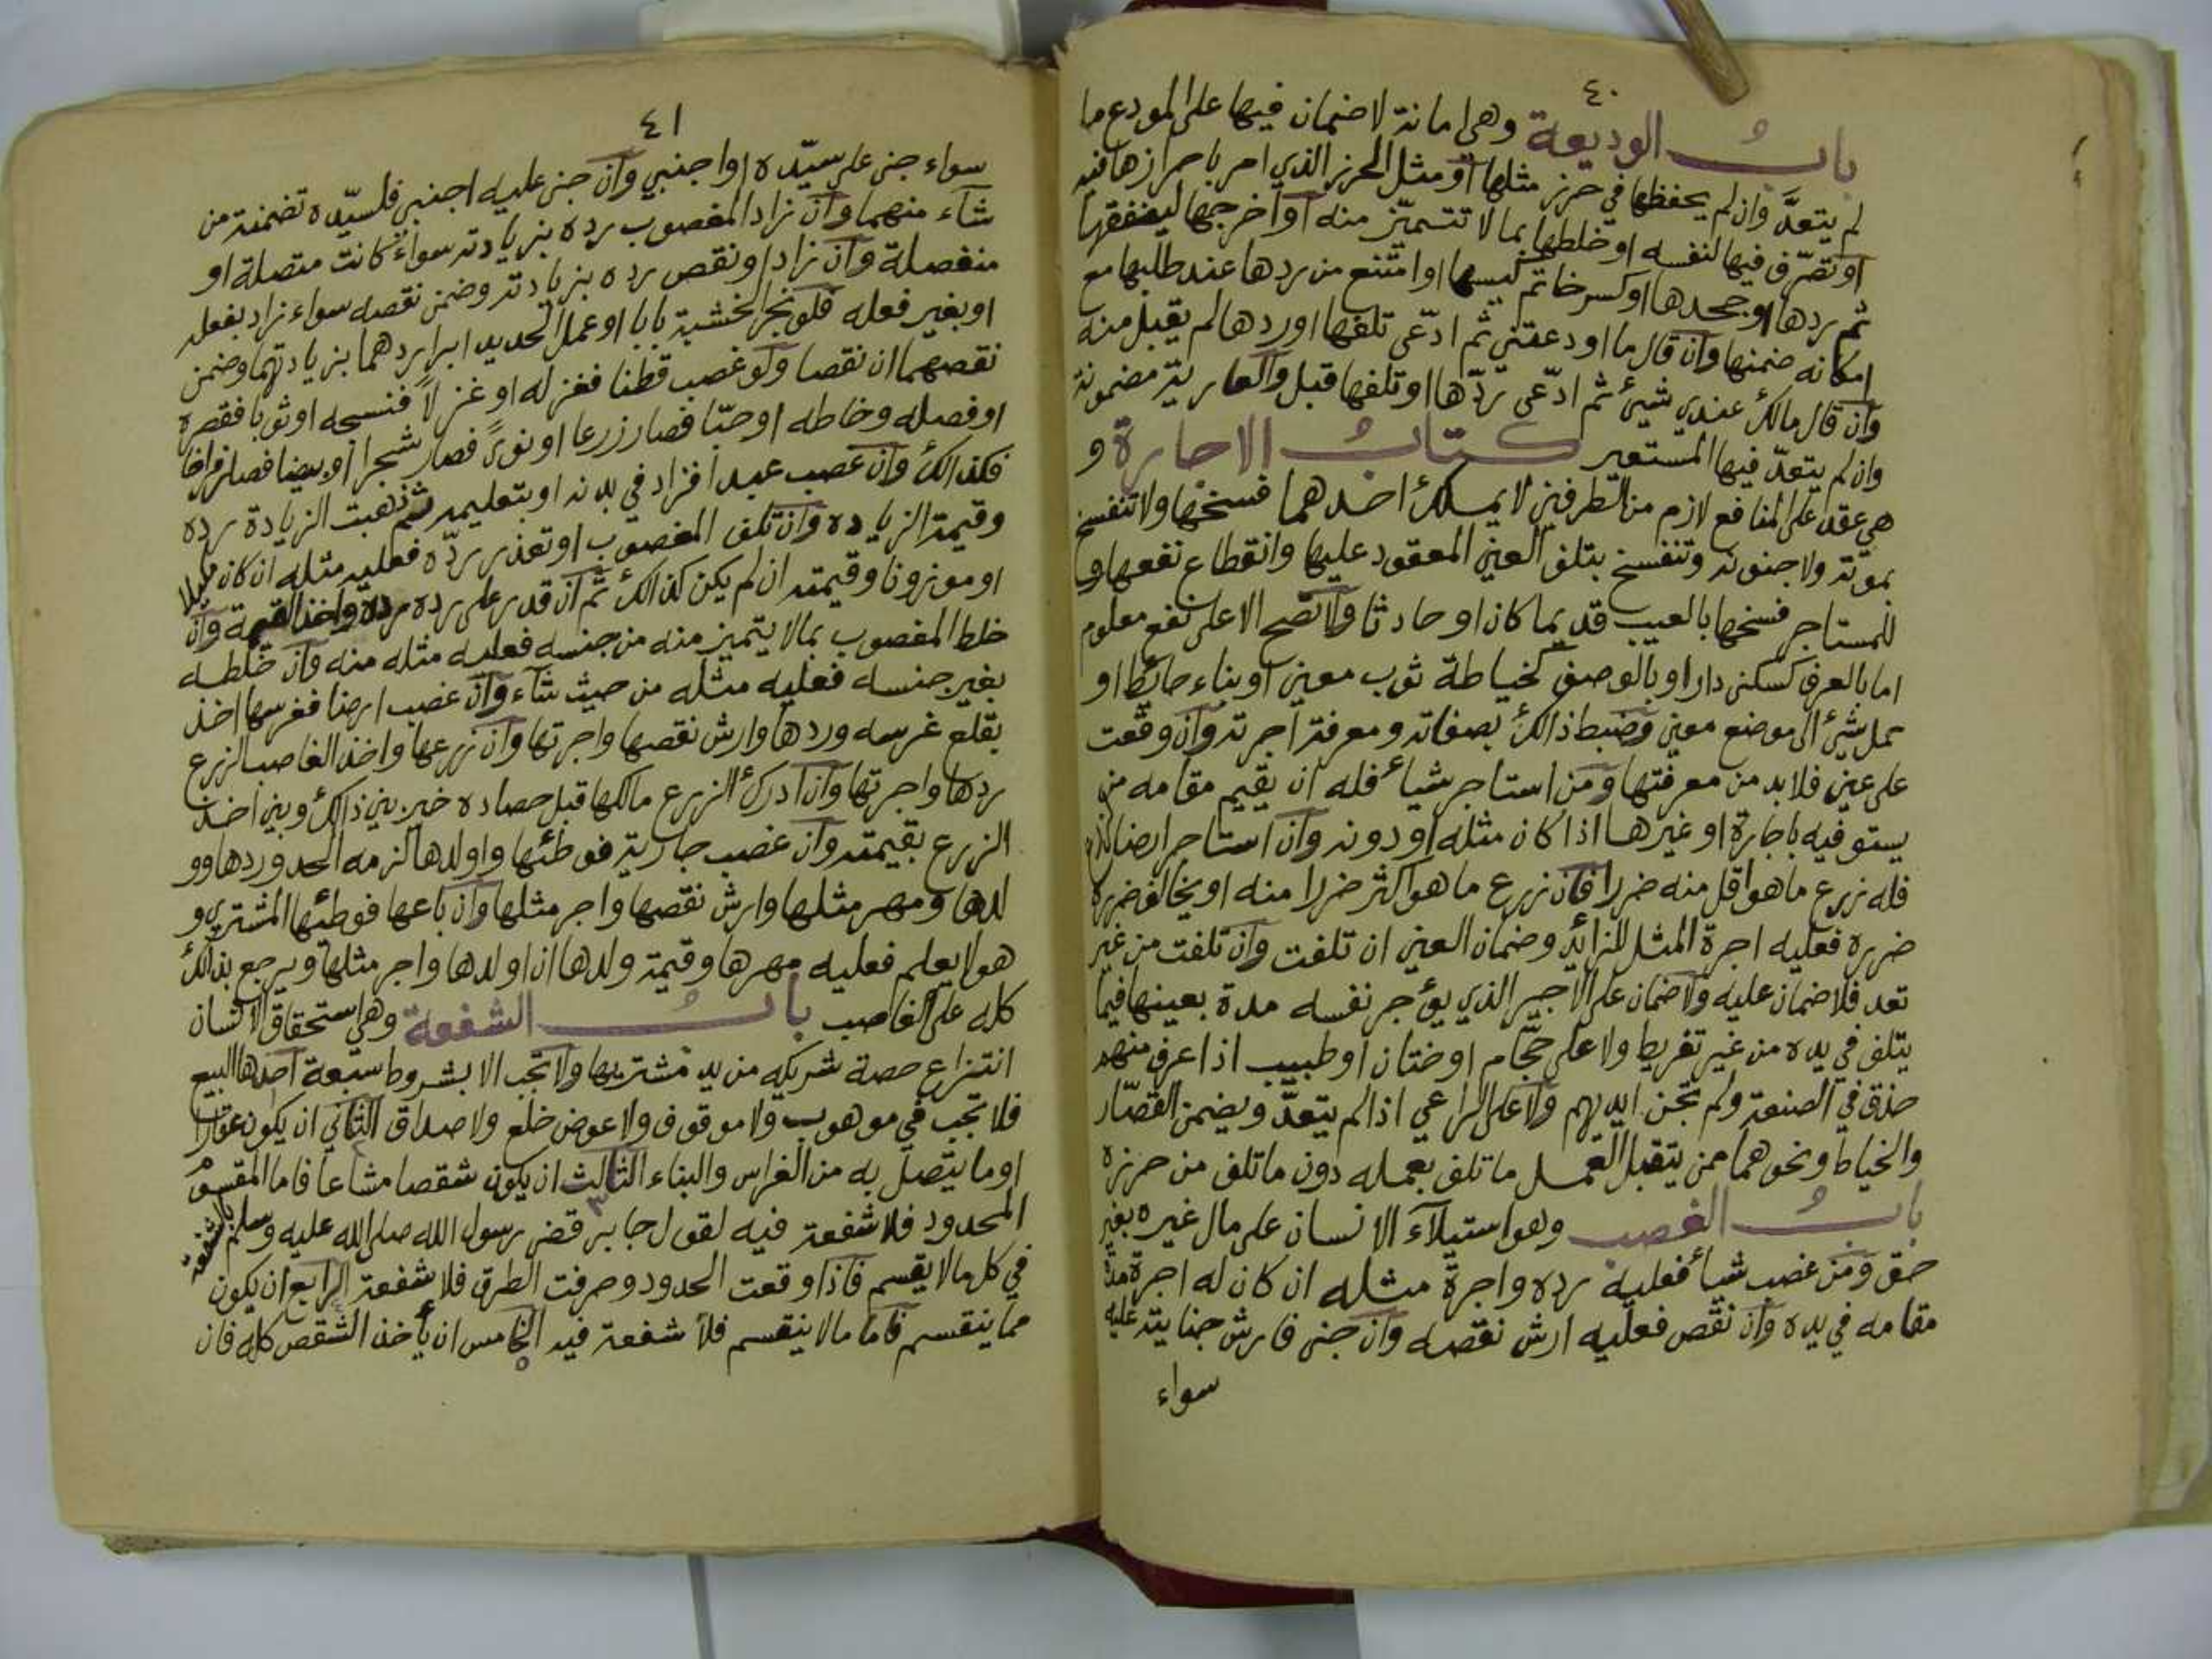 ٤٠
باب الوديعة وهي امانة لا ضمان فيها على المودع ما
لم يتعدَّ وان لم يحفظها في حرز مثلها أو مثل الحرز الذي امر باحرازها فيه
او تصرّف فيها لنفسه او خلطها بما لا تتميّز منه او اخرجها لينفقها
ثم ردها او جحدها او كسر ختم كيسها او امتنع من ردها عند طلبها مع
امكانه ضمنها وان قال ما اودعتني ثم ادّعى تلفها او ردها لم يقبل منه
وان قال مالك عندي شيئ ثم ادّعى ردّها او تلفها قبل والعارية مضمونة
وان لم يتعدّ فيها المستعير كتاب الاجارة و
هي عقد على المنافع لازم من الطرفين لا يملك احدهما فسخها ولا تنفسخ
بموته ولا جنونه وتنفسخ بتلف العين المعقود عليها وانقطاع نفعها و
للمستاجر فسخها بالعيب قديما كان او حادثا ولا تصح الا على نفع معلوم
اما بالعرف كسكنى دار او بالوصف كخياطة ثوب معين او بناء حائط او
حمل شيئ الى موضع معين وضبط ذالك بصفاته ومعرفة اجرته وان وقعت
على عين فلا بد من معرفتها ومن استاجر شيأ فله ان يقيم مقامه من
يستوفيه باجارة او غيرها اذا كان مثله او دونه وان استاجر ارضا لزرع
فله زرع ما هو اقل منه ضررا فان زرع ما هو اكثر ضررا منه او يخالف ضرره
ضرره فعليه اجرة المثل للزائد وضمان العين ان تلفت وان تلفت من غير
تعد فلا ضمان عليه ولا ضمان على الاجير الذي يؤجر نفسه مدة بعينها فيما
يتلف في يده من غير تفريط ولا على حجّام او ختان او طبيب اذا عرف منهم
حذق في الصنعة ولم تجن ايديهم ولا على الراعي اذا لم يتعدّ ويضمن القصّار
والخياط ونحوهما ممن يتقبل العمل ما تلف بعمله دون ما تلف من حرزه
باب الغصب وهو استيلآء الانسان على مال غيره بغير
حق ومن غصب شيأ فعليه رده واجرة مثله ان كان له اجرة مدة
مقامه في يده وان نقص فعليه ارش نقصه وان جنى فارش جنايته عليه
سواء
٤١
سواء جنى على سيّده او اجنبي وان جنى عليه اجنبي فلسيّده تضمنة من
شآء منهما وان زاد المغصوب رده بزيادته سواء كانت متصلة او
منفصلة وان زاد او نقص رده بزيادته وضمن نقصه سواء زاد بفعله
او بغير فعله فلو نجر الخشبة بابا او عمل الحديد ابرا ردهما بزيادتهما وضمن
نقصهما ان نقصا ولو غصب قطنا فغزله او غزلاً فنسجه او ثوبا فقصره
او فصله وخاطه او حبّا فصار زرعا او نوىً فصار شجرا او بيضا فصار فراخا
فكذالك وان غصب عبدا فزاد في بدنه او بتعليمه ثم ذهبت الزيادة رده
وقيمة الزياده وان تلف المغصوب او تعذر ردّه فعليه مثله ان كان مكيلا
او موزونا وقيمته ان لم يكن كذالك ثم ان قدر على رده رده واخذ القيمة وان
خلط المغصوب بما لا يتميز منه من جنسه فعليه مثله منه وان خلطه
بغير جنسه فعليه مثله من حيث شآء وان غصب ارضا فغرسها اخذ
بقلع غرسه وردها وارش نقصها واجرتها وان زرعها واخذ الغاصب الزرع
ردها واجرتها وان ادرك الزرع مالكها قبل حصاده خير بين ذالك وبين اخذ
الزرع بقيمته وان غصب جارية فوطئها واولدها لزمه الحد وردها وو
لدها ومهر مثلها وارش نقصها واجر مثلها وان باعها فوطئها المشتري و
هو لا يعلم فعليه مهرها وقيمة ولدها ان اولدها واجر مثلها ويرجع بذالك
كله على الغاصب باب الشفعة وهي استحقاق الانسان
انتزاع حصة شريكه من يد مشتريها ولا تجب الا بشروط سبعة احدها البيع
فلا تجب في موهوب ولا موقوف ولا عوض خلع ولا صداق الثاني ان يكون عقارا
او ما يتّصل به من الغراس والبناء الثالث ان يكون شقصا مشاعا فاما المقسوم
المحدود فلا شفعة فيه لقول جابر قضى رسول الله صلى الله عليه وسلم بالشفعة
في كل ما لا يقسم فاذا وقعت الحدود وصرفت الطرق فلا شفعة الرابع ان يكون
مما ينقسم فاما ما لا ينقسم فلا شفعة فيه الخامس ان يأخذ الشقص كله فان